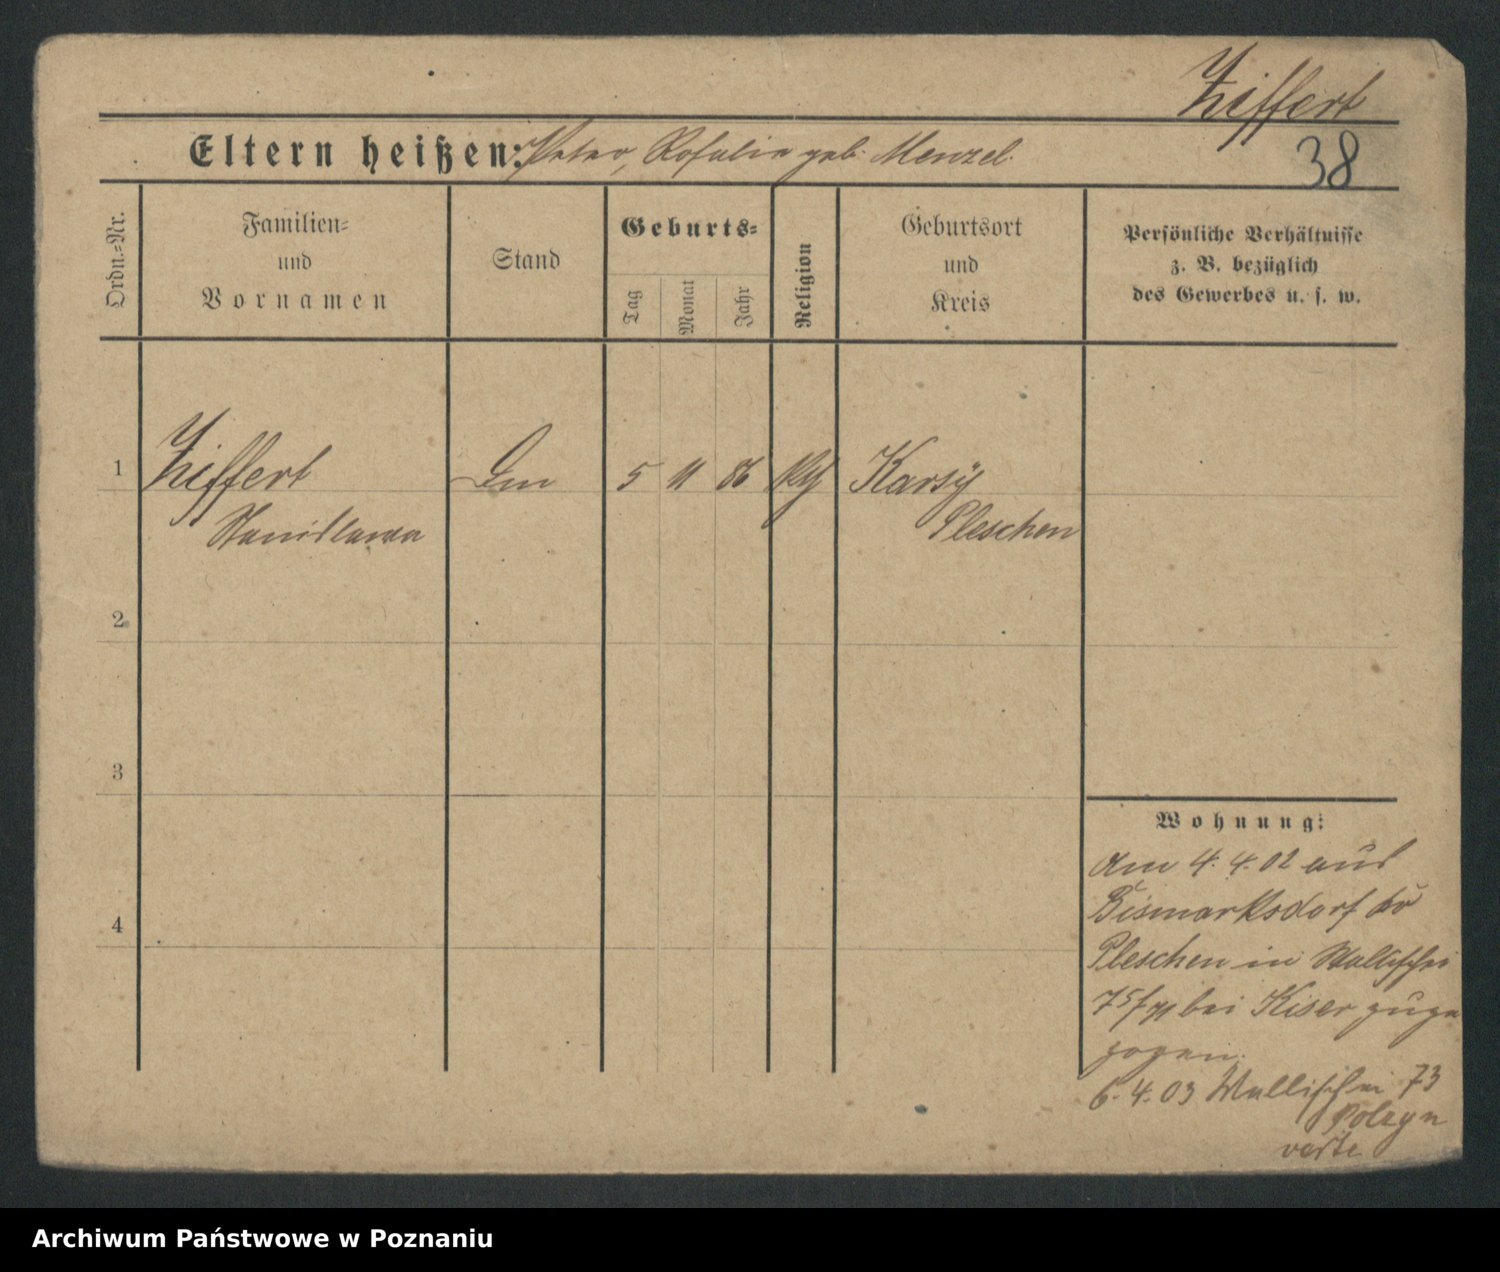 Ziffert
Eltern heißen: Peter, Rosalie geb. Menzel.
38
Ordn.-Nr.
Familien-
und
Vornamen
Stand
Geburts-
Tag
Monat
Jahr
Religion
Geburtsort
und
Kreis
Persönliche Verhältnisse
z. B. bezüglich
des Gewerbes u. s. w.
1
Ziffert
Stanislawa
5
11
86
Karsy
Pleschen
2
3
4
Wohnung:
Am 4. 4. 02 aus
Bismarksdorf
Pleschen in Wallischei
bei Kiser zuge
zogen.
6. 4. 03 Wallischei 73
Polzyn
verte
Archiwum Państwowe w Poznaniu